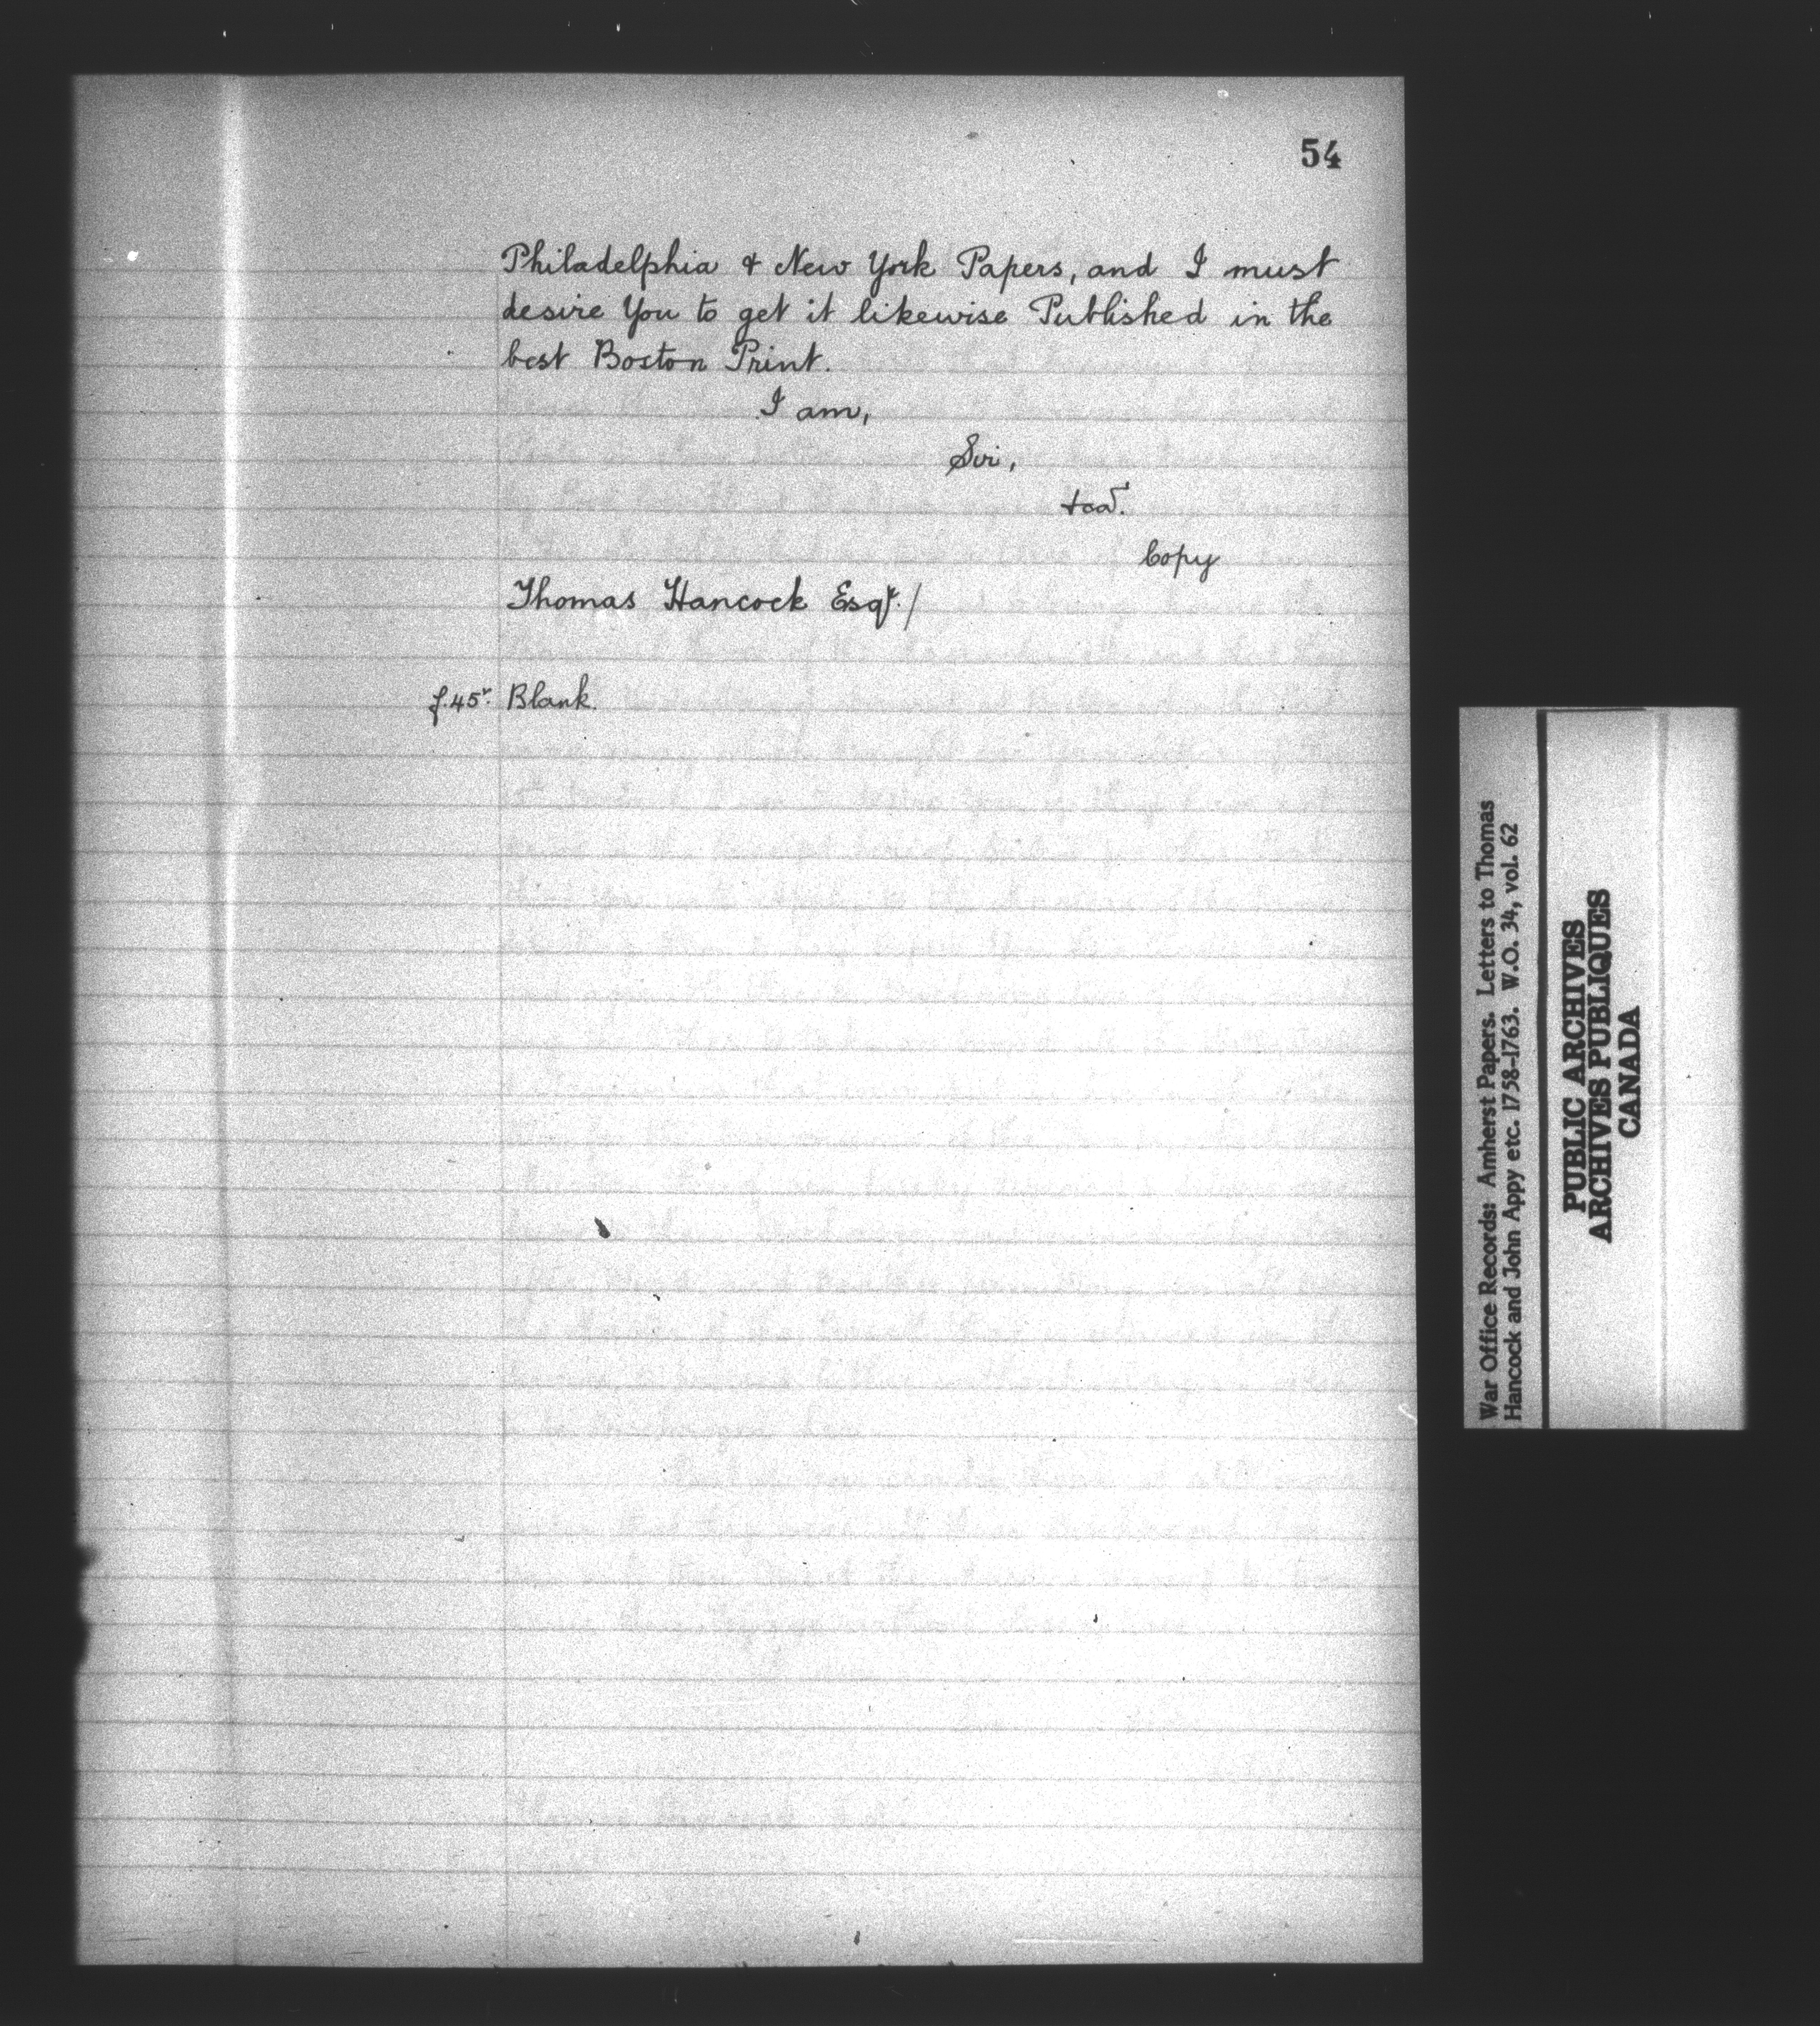 54
Philadelphia & New York Papers, and I must
desire You to get it likewise Published in the
best Boston Print.
I am,
Sir,
&ca.
Copy
Thomas Hancock Esqr./
f.45v. Blank.
War Office Records: Amherst Papers. Letters to Thomas
Hancock and John Appy etc. 1758-1763. W.O. 34, vol. 62
PUBLIC ARCHIVES
ARCHIVES PUBLIQUES
CANADA